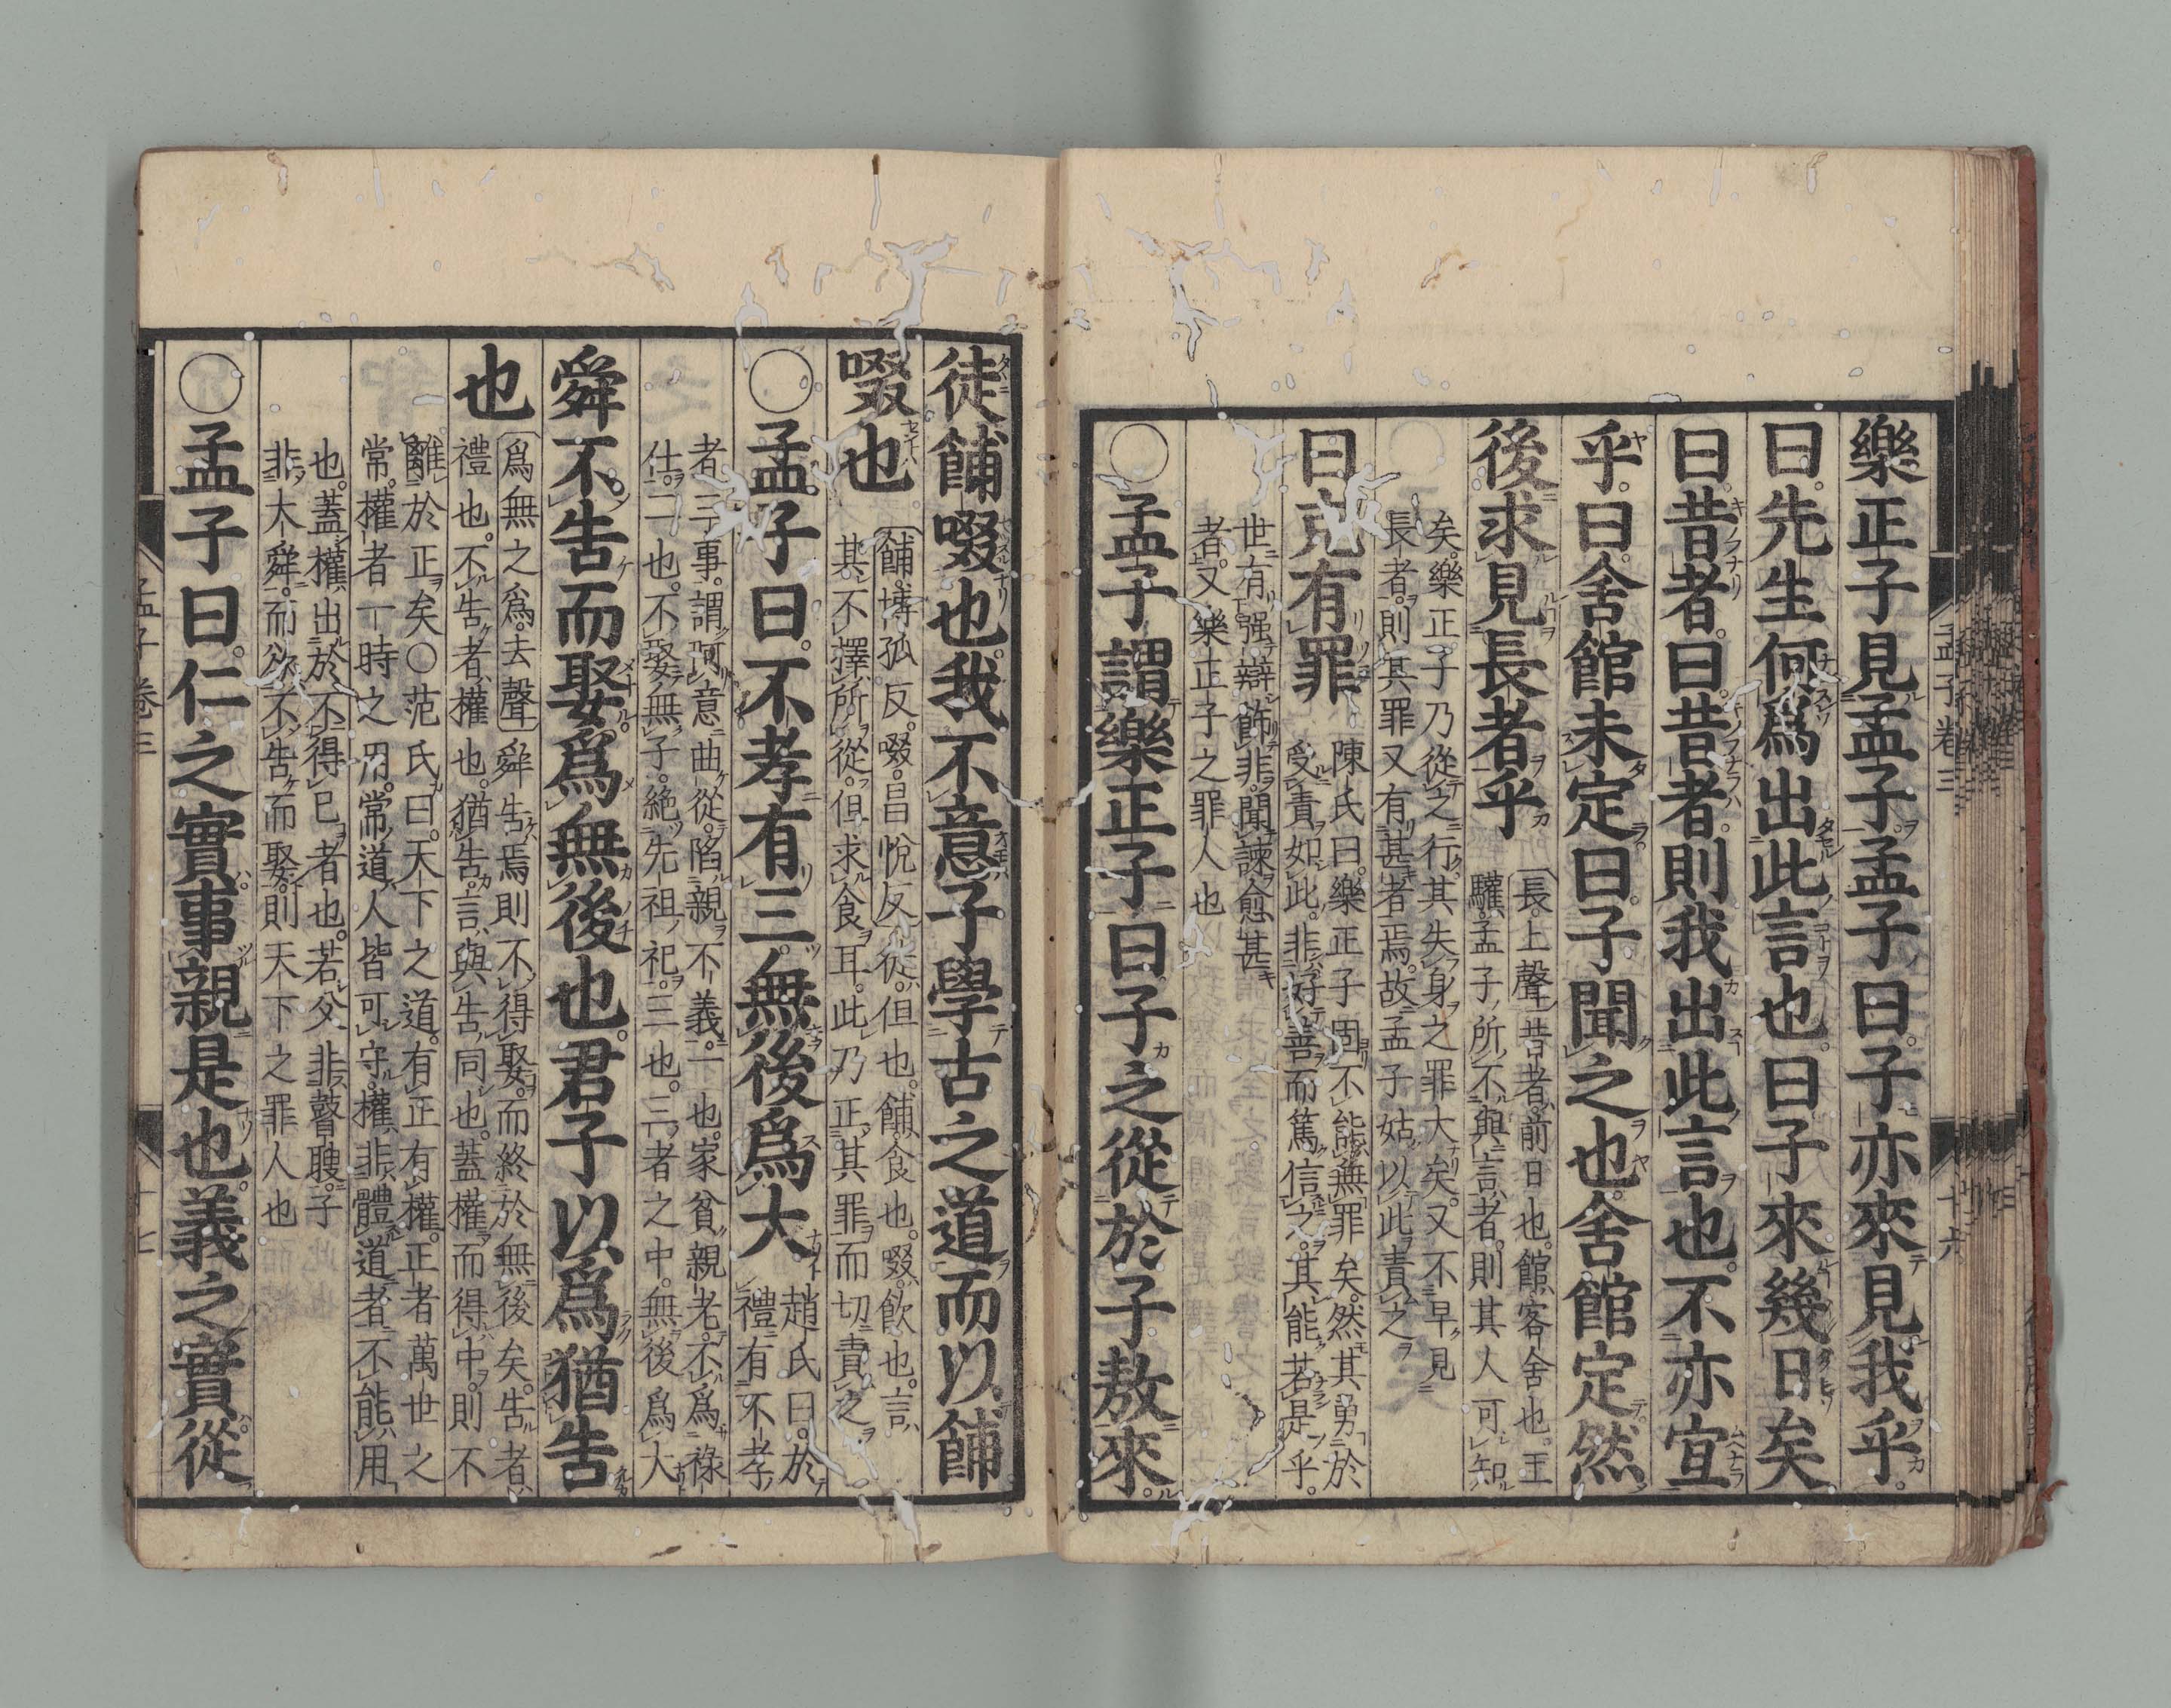 樂正子見孟子。孟子曰。子亦來見我乎。
曰。先生何爲出此言也。曰子來幾日矣
曰。昔者。曰。昔者。則我出此言也。不亦宜
乎。曰。舍館未定。曰。子聞之也。舍館定。然
後求見長者乎
長。上聲。昔者。前日也。館。客舍也。王
驩。孟子所不與言者。則其人可知
矣。樂正子乃從之行。其失身之罪大矣。又不早見
長者。則其罪又有甚者焉。故孟子姑以此責之
曰。克有罪
陳氏曰。樂正子固不能無罪矣。然其勇於
受責如此。非好善而篤信之。其能若是乎。
世有强辯飾非。聞諫愈甚
者。又樂正子之罪人也
○孟子謂樂正子曰。子之從於子敖來。
孟子卷三
十六
徒餔啜也。我不意子學古之道。而以餔
啜也
餔。博孤反。啜。昌悅反 徒。但也。餔。食也。啜。飲也。言
其不擇所從。但求食耳。此乃正其罪而切責之。
○孟子曰。不孝有三。無後爲大
趙氏曰。於
禮有不孝
者三事。謂阿意曲從。陷親不義。一也。家貧親老。不爲祿
仕。二也。不娶無子。絶先祖祀。三也。三者之中。無後爲大
舜不告而娶。爲無後也。君子以爲猶告
也
爲無之爲。去聲 舜告焉則不得娶。而終於無後矣。告者。
禮也。不告者。權也。猶告。言與告同也。蓋權而得中。則不
離於正矣○范氏曰。天下之道。有正有權。正者萬世之
常。權者一時之用。常道人皆可守。權非體道者不能用
也。蓋權出於不得已者也。若父非瞽瞍。子
非大舜。而欲不告而娶。則天下之罪人也
○孟子曰。仁之實。事親是也。義之實。從
孟子卷三
十七